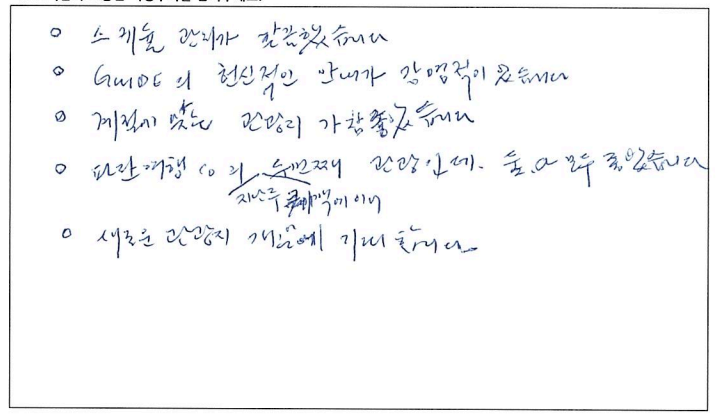 스케쥴 관리가 깔끔했습니다
GUIDE의 헌신적인 안내가 감명적이었습니다
계절에 맞는 관광지가 참 좋았습니다
파란여행 co의 두번째 관광인데. 둘.다 모두 좋았습니다
지난루 에이어
새로운 관광지 개발에 기대합니다